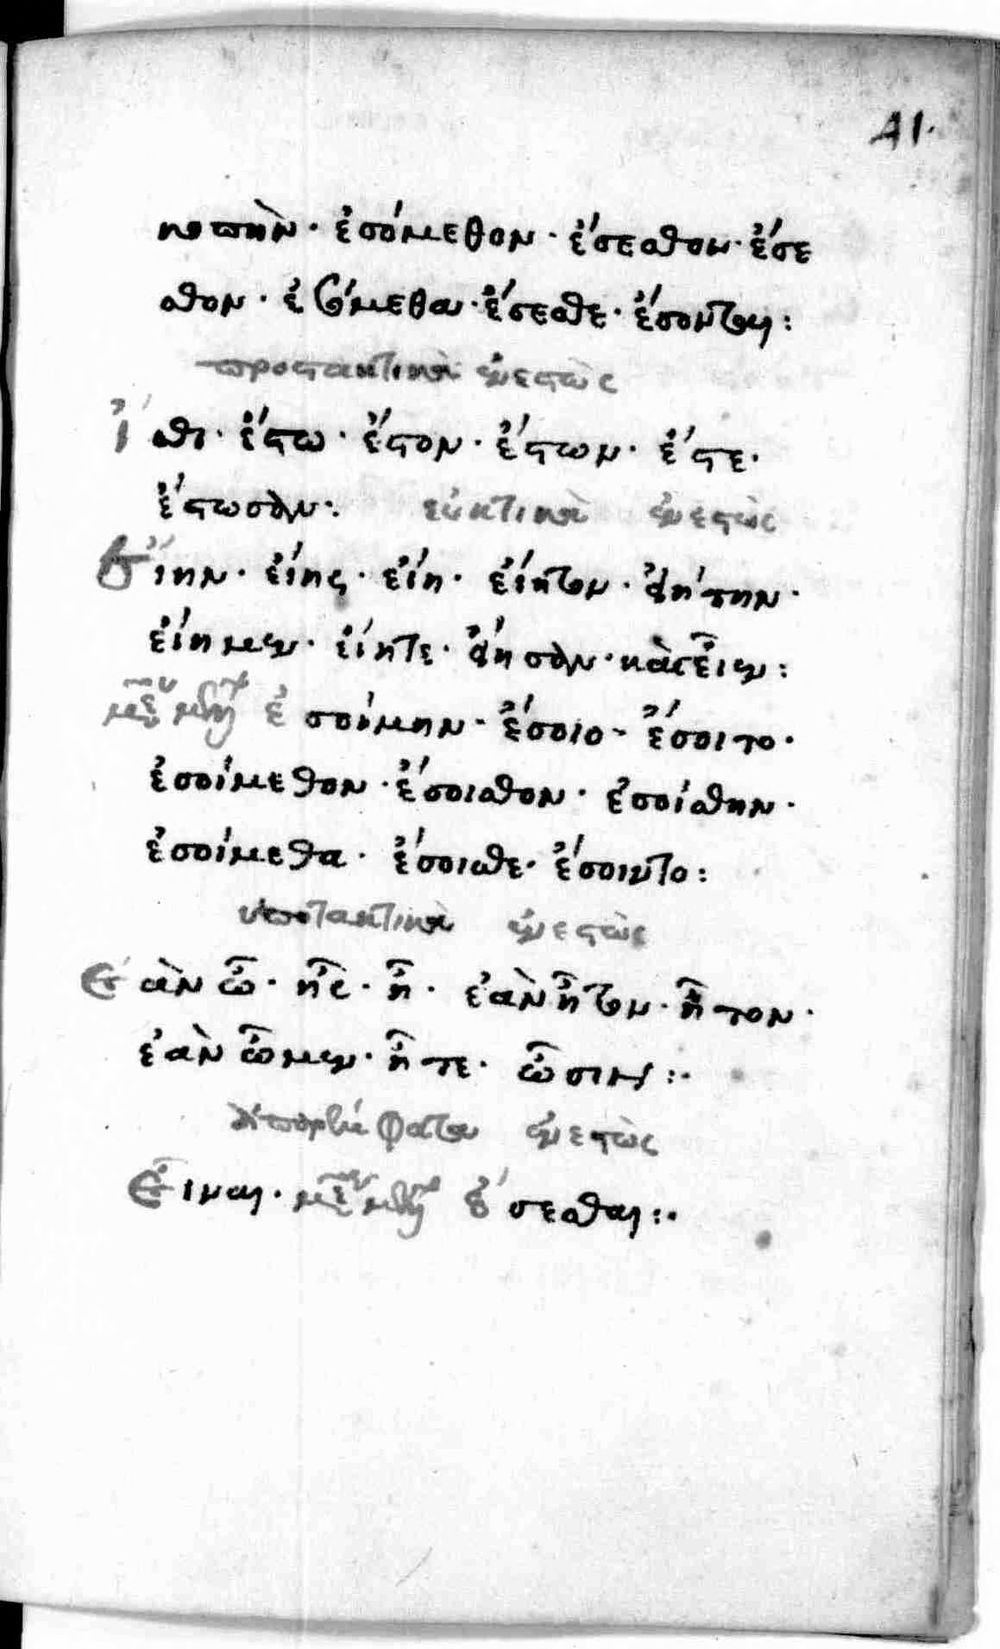 41.
κοπὴν· ἐσόμεθον· ἔσεσθον· ἔσε
σθον· ἐσόμεθα· ἔσεσθε· ἔσονται:
προστακτικὰ ἐνεστὼς
ἴσθι· ἔστω· ἔστον· ἔστων· ἔστε·
ἔστωσαν: εὐκτικὰ ἐνεστὼς
εἴην· εἴης· εἴη· εἴητον· εἰήτην·
εἴημεν· εἴητε· εἴησαν· καὶ εἶεν:
ἐσοίμην· ἔσοιο· ἔσοιτο·
ἐσοίμεθον· ἔσοισθον· ἐσοίσθην·
ἐσοίμεθα· ἔσοισθε· ἔσοιντο:
ὑποτακτικὰ ἐνεστὼς
ἐὰν ὦ· ἦς· ἦ· ἐὰν ἦτον· ἦτον·
ἐὰν ὦμεν· ἦτε· ὦσιν:·
ἀπαρέμφατα ἐνεστὼς
εἶναι· ἔσεσθαι:·